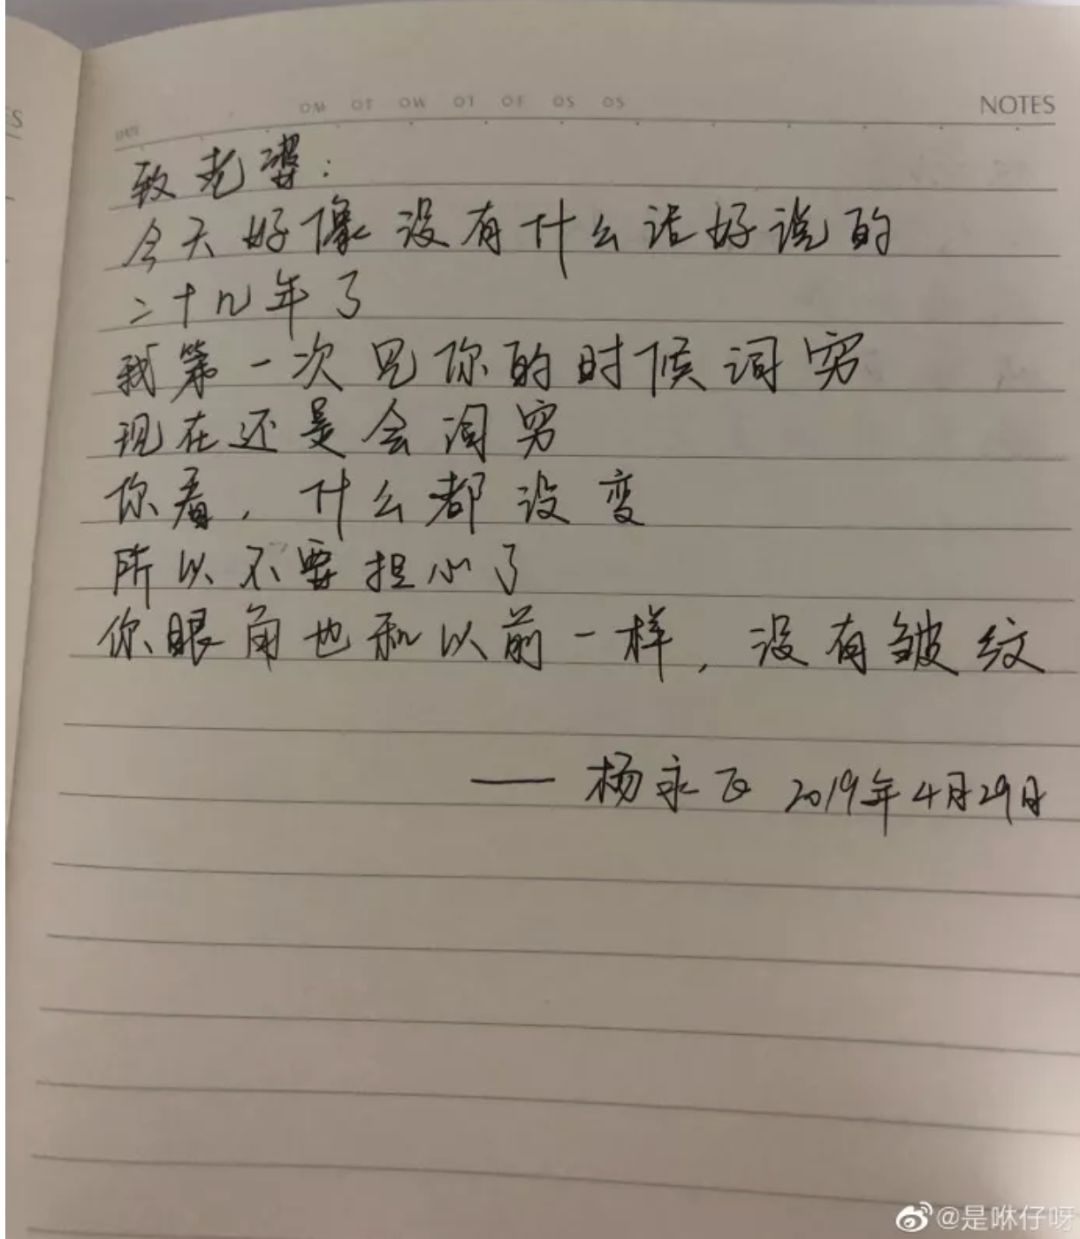 NOTES
OM OT OW OT OF OS OS
致老婆：
今天好像没有什么话好说的
二十九年了
我第一次见你的时候词穷
现在还是会词穷
你看，什么都没变
所以不要担心了
你眼角也和以前一样，没有皱纹
——杨永正 2019年4月29日
@是咻仔呀